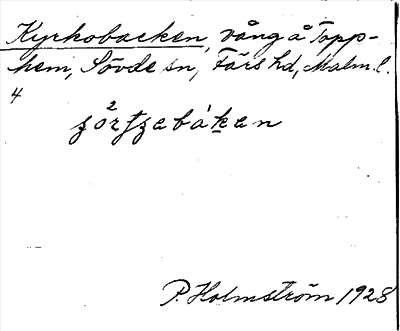 Kyrkobacken, vång å Topp-
hem, Sövde sn, Färs hd, Malm. l.
4
P. Holmström 1928